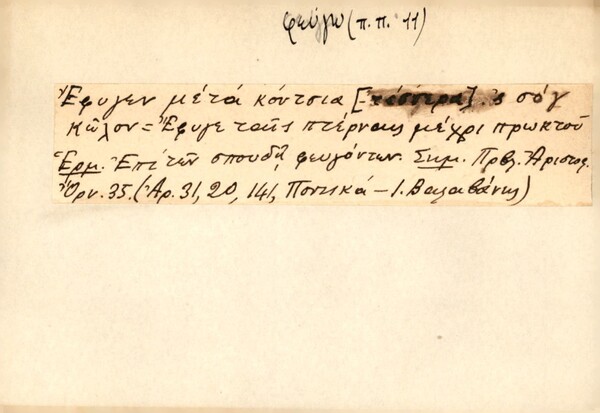 φεύγω (π.π. 11)
Ἔφυγεν μέτα κόντσια [ ] 'ς σόγ
κῶλον = Ἔφυγε ταῖς πτέρναις μέχρι πρωκτοῦ
Ἑρμ. Ἐπὶ τῶν σπουδῇ φευγόντων. Σημ. Πρβλ. Ἀριστοφ.
Ὄρν. 35. (Ἀρ. 31, 20, 141, Ποντικά – Ι. Βαλαβάνης)